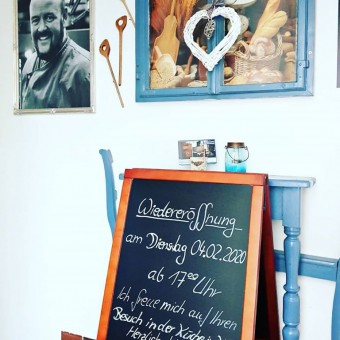 Wiedereröffnung
am Dienstag 04.02.2020
ab 17⁰⁰ Uhr
Ich freue mich auf Ihren
Besuch in der Küche
Herzlich